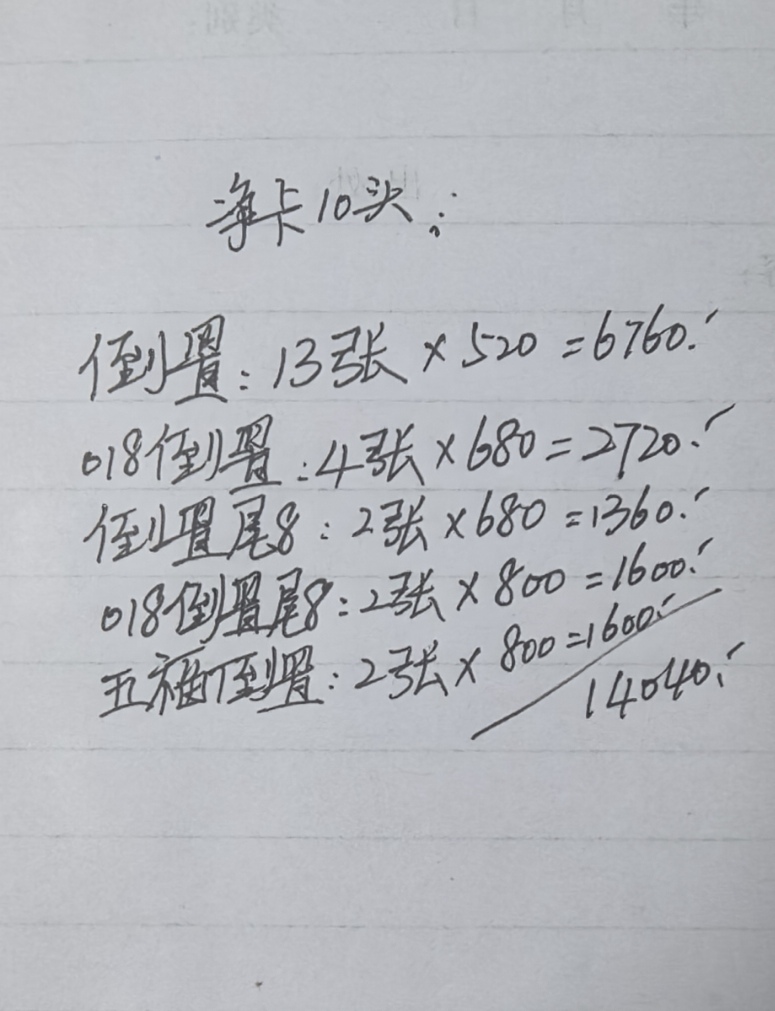 海卡10头:
倒置:13张×520=6760.
018倒置:4张×680=2720.
倒置尾8:2张×680=1360.
018倒置尾8:2张×800=1600.
五福倒置:2张×800=1600.
14040.